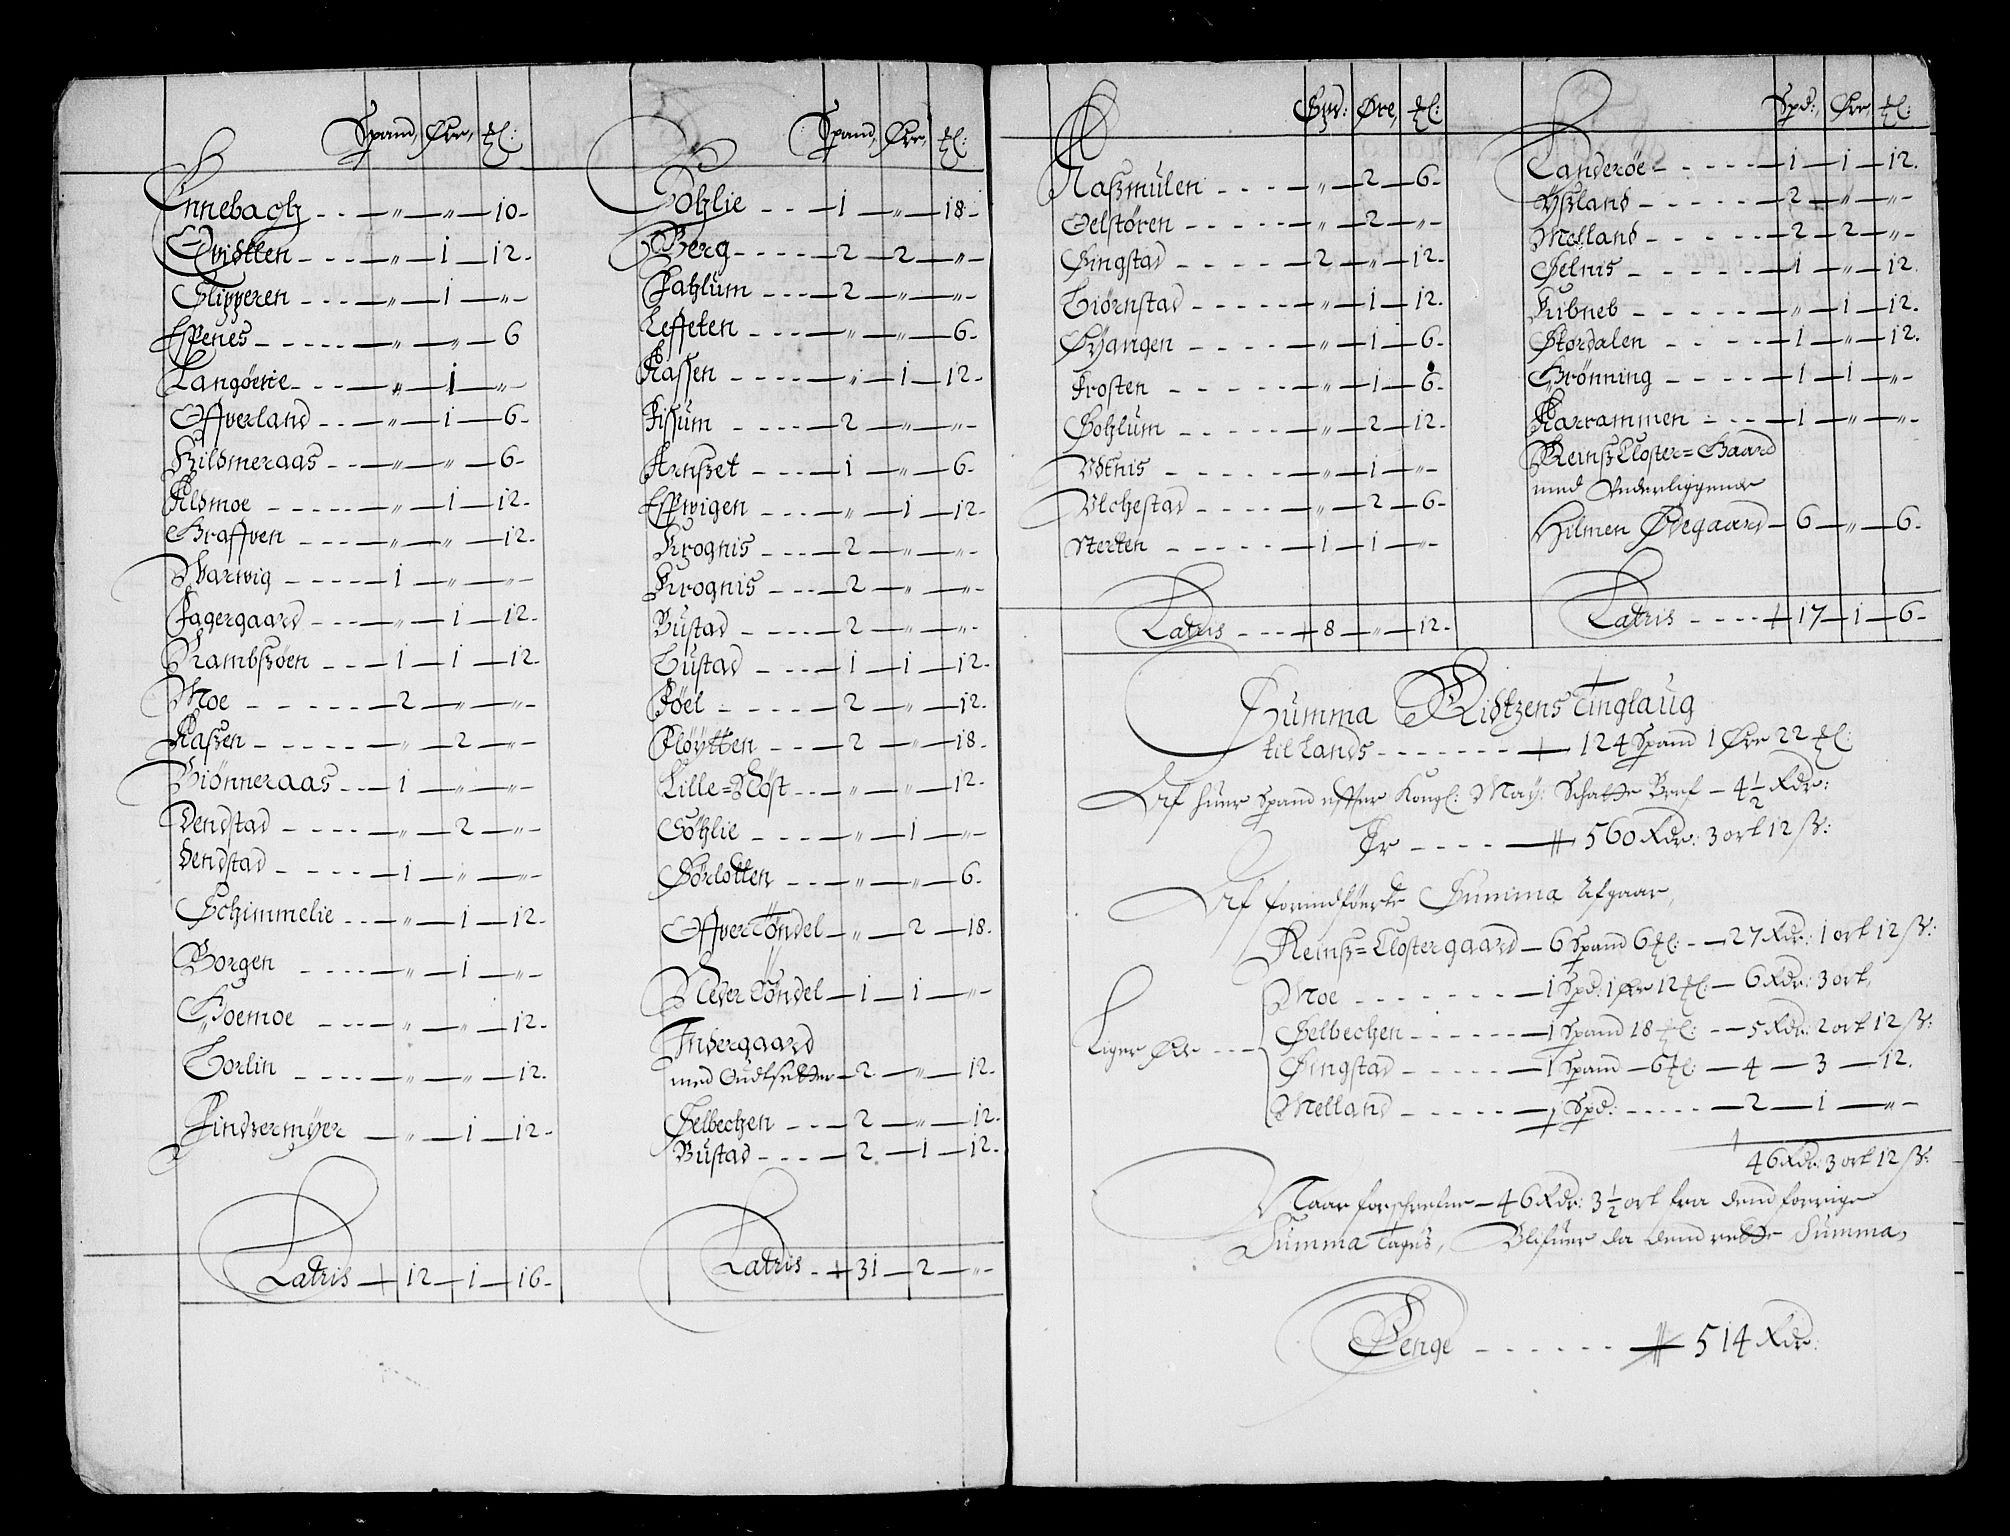 Spand, Øre, ℔l:
Ennebach - - - „ - „ - 10 -
Qvidtten - - - „ - 1 - 12 -
Slipperen - - - „ - 1 - „ -
Espenes - - - „ - „ - 6
Langøerie - - - „ - 1 - „ -
Offverland - - - „ - 1 - 6 -
Hildmeraas - - - „ - „ - 6 -
Aldmoe - - - „ - 1 - 12 -
Graffven - - - „ - „ - 12 -
Warwig - - - 1 - „ - „ -
Fagergaard - - - „ - 1 - 12 -
Rambsøen - - - 1 - 1 - 12 -
Moe - - - 2 - „ - „ -
Raßen - - - „ - 2 - „ -
Biønneraas - - - 1 - „ - „ -
Dendstad - - - „ - 2 - „ -
Dendstad - - - 1 - „ - „ -
Schimmelie - - - „ - 1 - 12 -
Borgen - - - „ - 1 - „ -
Goemoe - - - „ - „ - 12 -
Torlin - - - „ - „ - 12 -
Findsermyer - „ - 1 - 12 -
Latris + 12 - 1 - 16 -
Spand, Øre, ℔l:
Sohlie - - - 1 - „ - 18 -
Berg - - - 2 - 2 - „ -
Fahlum - - - 2 - „ - „ -
Leffeten - - - „ - „ - 6 -
Aassen - - - „ - 1 - 12 -
Fissum - - - 2 - „ - „ -
Arnßet - - - 1 - „ - 6 -
Espwigen - - - „ - 1 - 12 -
Krognis - - - 2 - „ - „ -
Krognis - - - 2 - „ - „ -
Bustad - - - 2 - „ - „ -
Tustad - - - 1 - 1 - 12 -
Føel - - - 2 - „ - 12 -
Fløytten - - - 2 - „ - 18 -
Lille=Røst - - - „ - „ - 12 -
Søhlie - - - „ - 1 - „ -
Sørlotten - - - „ - „ - 6 -
Offver Tøndel - „ - 2 - 18 -
Neder Tøndel - 1 - 1 - „ -
Indergaard
med Gudtsetter - 2 - „ - 12 -
Selbechen - - - 2 - „ - 12 -
Bustad - - - 2 - 1 - 12 -
Latris - + 31 - 2 - „ -
Spd: Øre, ℔l:
Naßmulen - - - „ - 2 - 6 -
Oelstøren - - - „ - 2 - „ -
Singstad - - - 2 - „ - 12 -
Tiørnstad - - - „ - 1 - 12 -
Øyangen - - - „ - 1 - 6 -
Frosten - - - „ - 1 - 6 -
Sohlum - - - „ - 2 - 12 -
Udtnis - - - „ - 1 - „ -
Ulchestad - - - „ - 2 - 6 -
Sterten - - - 1 - 1 - „ -
Latris - - - + 8 - „ - 12 -
Spd: Øre, ℔l:
Randerøe - - - 1 - 1 - 12 -
Yßland - - - 2 - „ - „ -
Melland - - - 2 - 2 - „ -
Selnis - - - 1 - „ - 12
Kubneb - - - „ - 1 - 12 -
Stordalen - - - 1 - „ - 12 -
Grønning - - - 1 - 1 - „ -
Karrammen - - - 1 - „ - „ -
Reinß Closter=Gaard
med Underliggende
Hilmen Ødegaard - 6 - „ - 6 -
Latris - - - + 17 - 1 - 6 -
Summa Ridtzens Tinglaug
til Lands - - - + 124 Spand 1 Øre 22 ℔l:
Af huer Spand effter Kongl: May: Schatte Bref - 4½ Rdr:
Er - - - 560 Rdr: 3 ort 12 ß:
Af forindførte Summa Afgaar,
Reinß=Clostergaard - 6 Spand 6 ℔l: - 27 Rdr: 1 ort 12 ß:
Moe - - - 1 Spd: 1 Øre 12 ℔l: - 6 Rdr: 3 ort,
Selbechen - - - 1 Spand 18 ℔l: - 5 Rdr: 2 ort 12 ß:
Liger Øde - - -
Singstad - - - 1 Spand - 6 ℔l: - 4 - 3 - 12.
Melland - - - ½ Spd: - - - 2 - 1 - „ -
46 Rdr: 3 ort 12 ß:
Naar forschrefne - 46 Rdr: 3½ ort fra dend forrige
Summa Tages, Blifuer da dend rette Summa,
Penge - - - 514 Rdr: